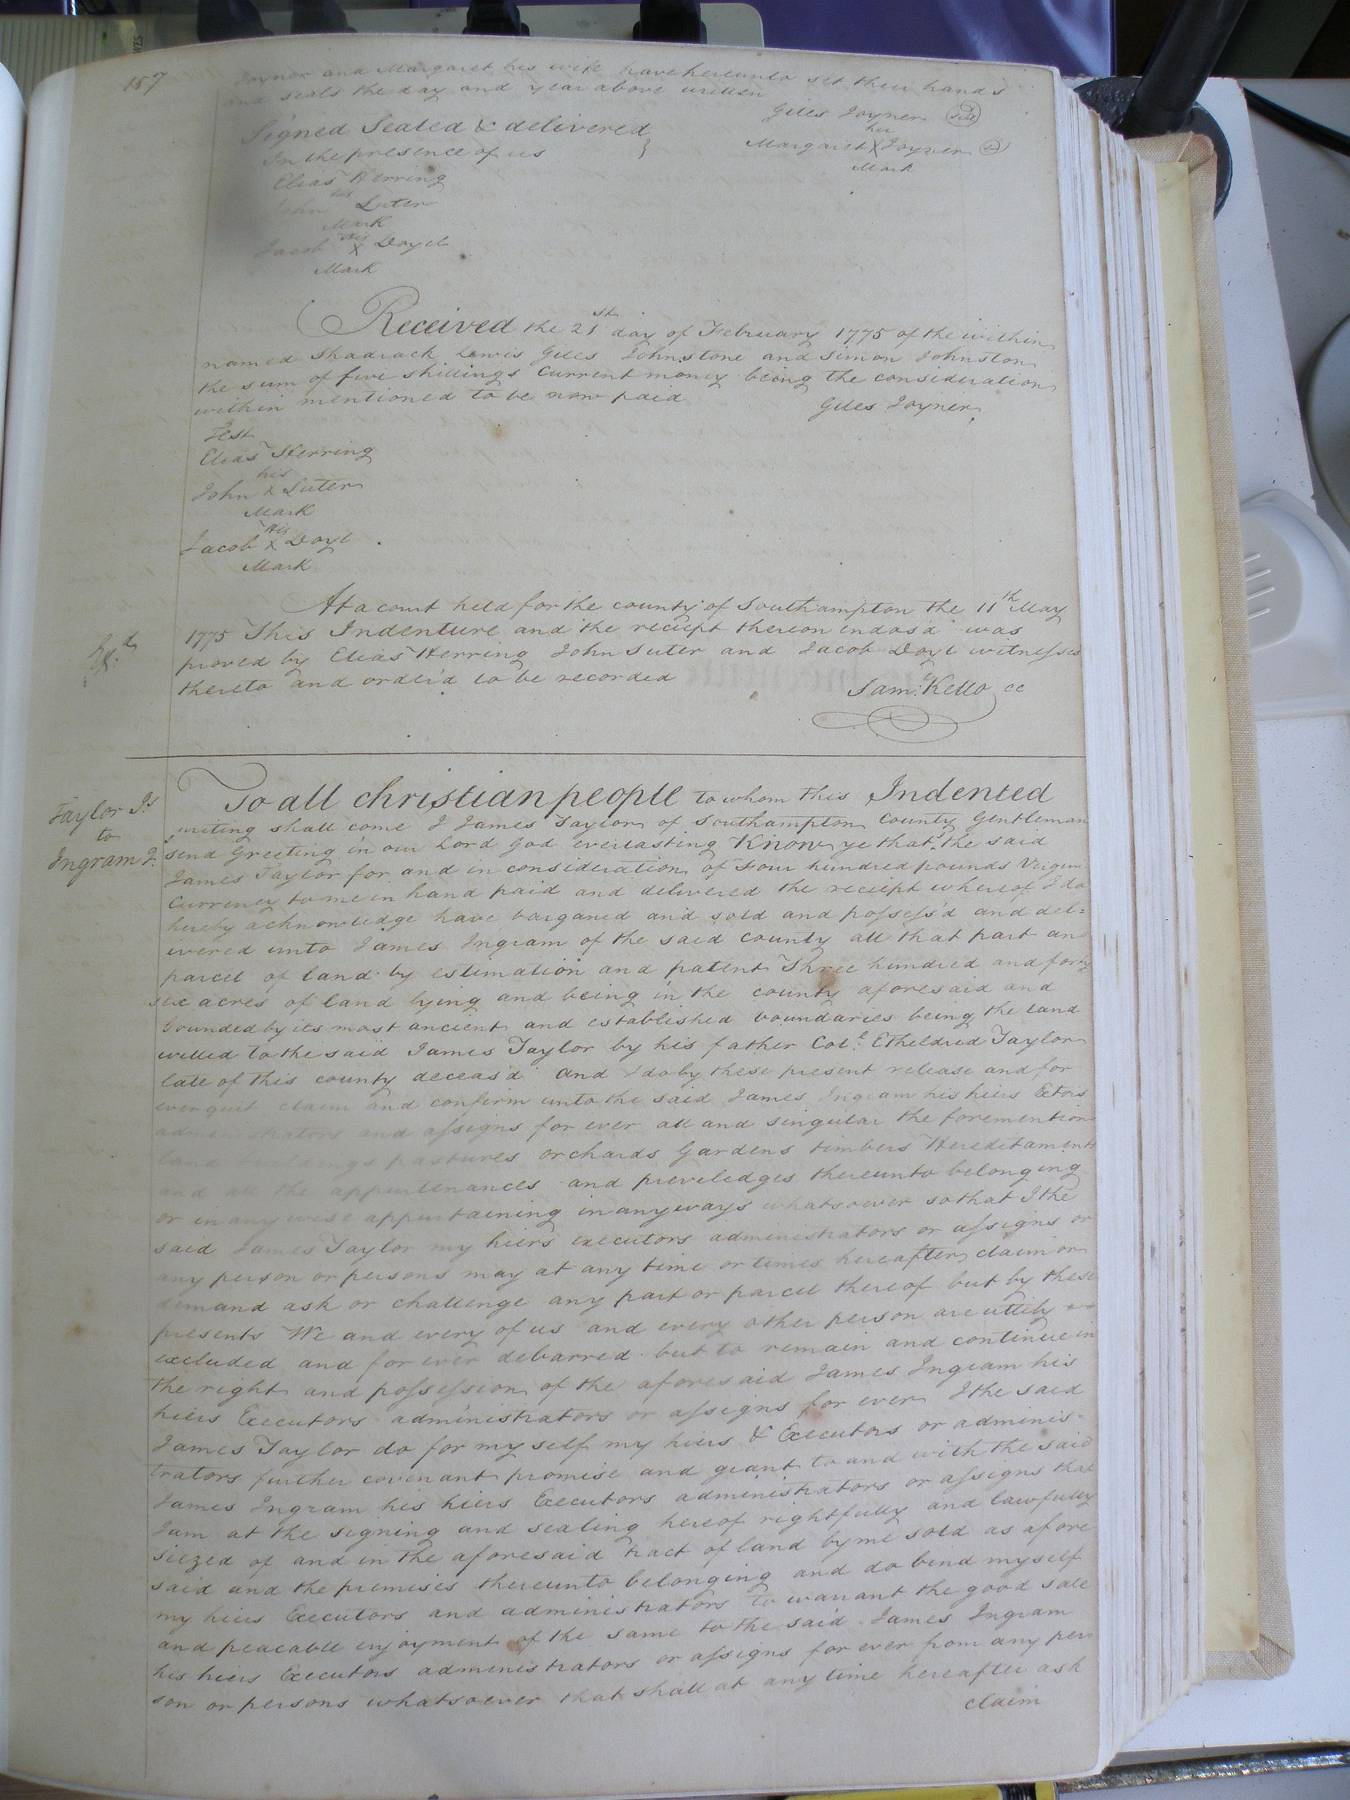 157
Joyner and Margaret his wife have hereunto set their hands
and seals the day and year above written
Giles Joyner seal
Signed Sealed & delivered
In the presence of us
her
Margaret X Joyner
Mark
Elias Herring
his
John Luter
Mark
his
Jacob X Doyel
Mark
Received the 21st day of February 1775 of the within
named Shadrack Lewis Giles Johnstone and Simon Johnston
the sum of five shillings Current money being the consideration
within mentioned to be now paid
Giles Joyner
Test
Elias Herring
his
John X Luter
Mark
His
Jacob X Doyl
Mark
At a court held for the county of Southampton the 11th May
1775 This Indenture and the reciept thereon indos'd was
proved by Elias Herring John Luter and Jacob Doyl witnesses
thereto and order'd to be recorded
Sam: Kello cc
Exd
Taylor Js
to
Ingram J.
To all christian people to whom this Indented
writing shall come I James Taylor of Southampton County Gentleman
send Greeting in our Lord God everlasting Know ye that I the said
James Taylor for and in consideration of Four hundred pounds Virgin
Currency to me in hand paid and delivered the reciept whereof I do
hereby acknowledge have barganed and sold and possess'd and del=
ivered unto James Ingram of the said county all that part an
parcel of land by estimation and patent Three hundred and forty
six acres of land lying and being in the county aforesaid and
bounded by its most ancient and established boundaries being the land
willed to the said James Taylor by his father Col.l Etheldred Taylor
late of this county deceas'd and I do by these present release and for
ever quit claim and confirm unto the said James Ingram his heirs Ectors
administrators and assigns for ever all and singular the foremention
land buildings pastures orchards Gardens timbers Hereditaments
and all the appurtenances and preveledges thereunto belonging
or in any wise appurtaining in any ways whatsoever so that I the
said James Taylor my hiers executors administrators or assigns or
any person or persons may at any time or times hereafter claim or
demand ask or challenge any part or parcel thereof but by these
presents We and every of us and every other person are uttily
excluded and for ever debarred but to remain and continue in
the right and possession of the aforesaid James Ingram his
hiers Executors administrators or assigns for ever I the said
James Taylor do for my self my hiers & Executors or adminis-
trators further covenant promise and grant to and with the said
James Ingram his hiers Executors administrators or assigns that
I am at the signing and sealing hereof rightfully and lawfully
siezed of and in the aforesaid tract of land by me sold as afore
said and the premises thereunto belonging and do bind myself
my hiers Executors and administrators to warrant the good sale
and peacable enjoyment of the same to the said James Ingram
his hiers Executors administrators or assigns for ever from any per
son or persons whatsoever that shall at any time hereafter ask
claim